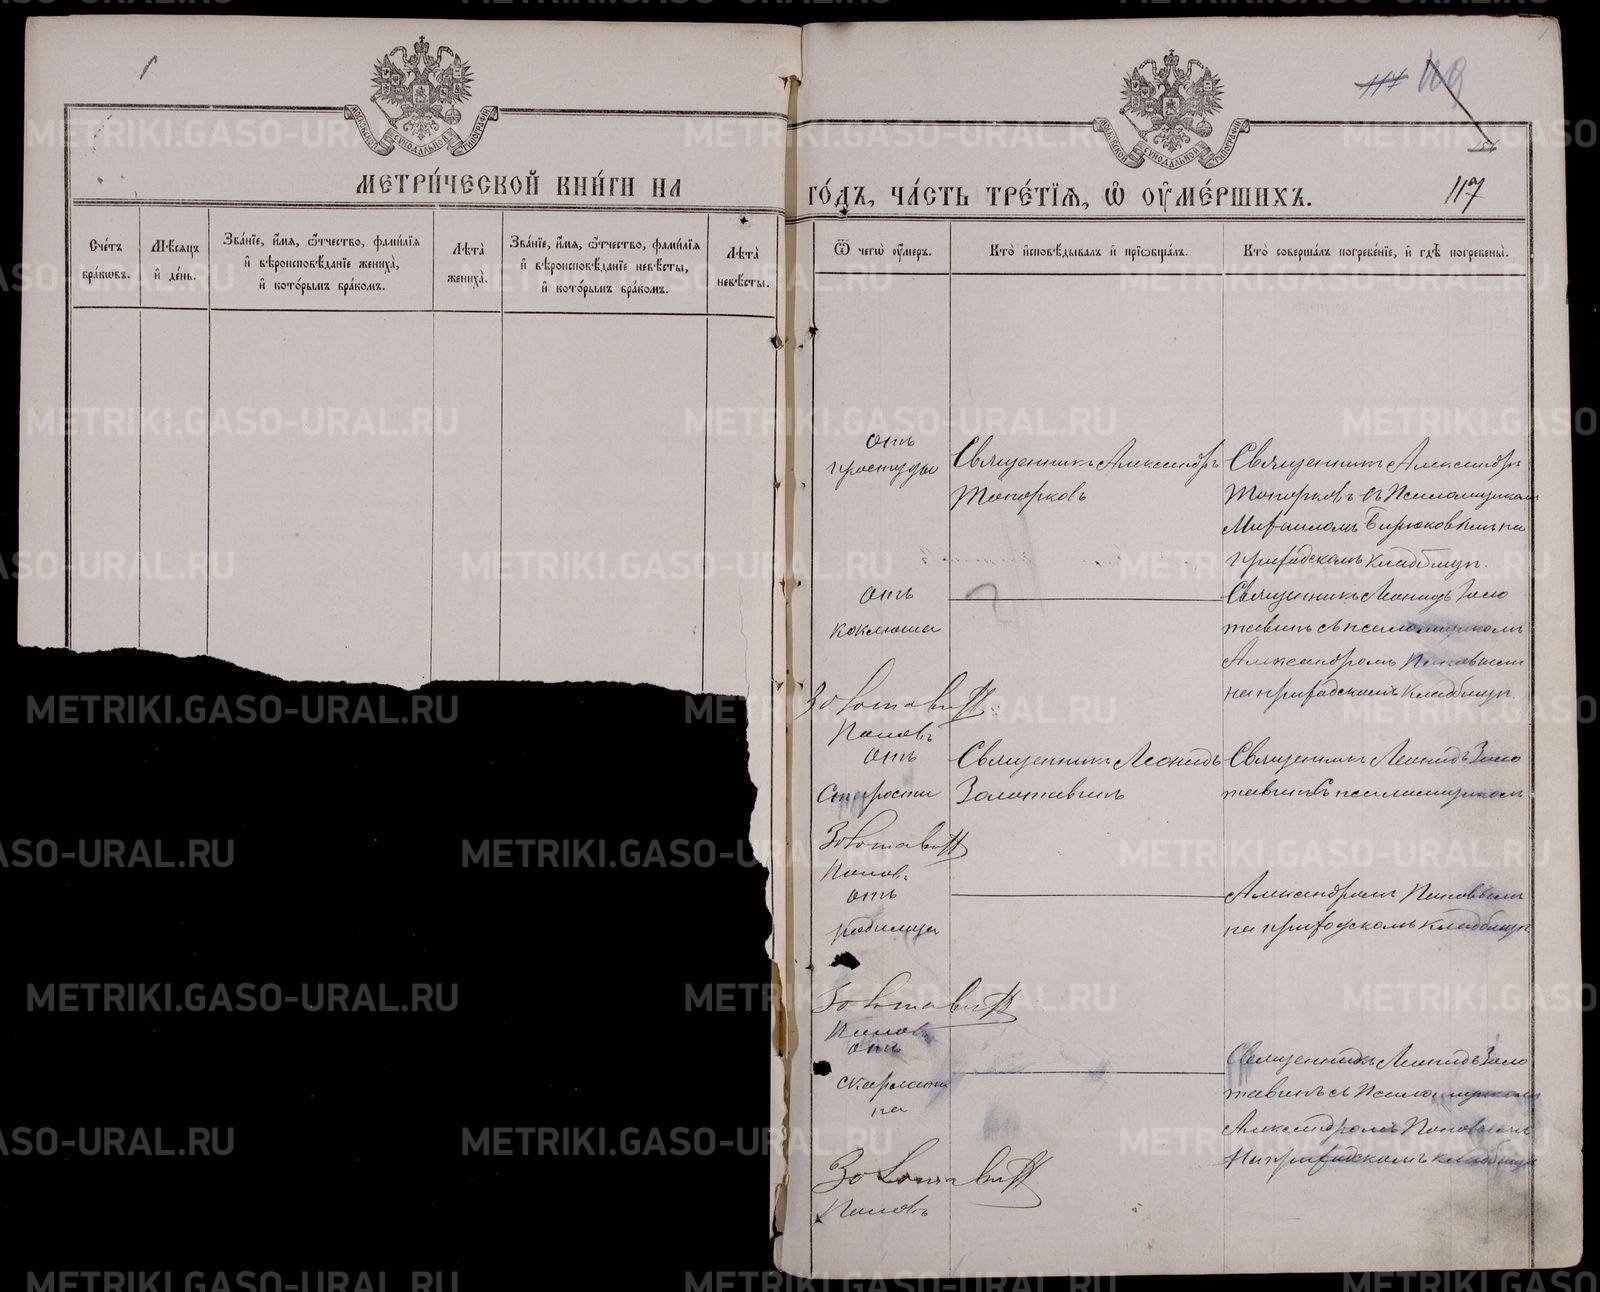 1
МЕТРИ́ЧЕСКОЙ КНИ́ГИ НА
Сче́тъ бра́ковъ.
Мѣ́сяцъ и҆ де́нь.
Зва́нїе, и҆́мя, ѻ҆́тчество, фами́лїя и҆ вѣроисповѣ́данїе жениха̀, и҆ кото́рымъ бра́комъ.
Лѣ́та жениха̀.
Зва́нїе, и҆́мя, ѻ҆́тчество, фами́лїя и҆ вѣроисповѣ́данїе невѣ́сты, и҆ кото́рымъ бра́комъ.
Лѣ́та невѣ́сты.
МОСКОВСКОЙ СѴНОДАЛЬНОЙ ТИПОГРАФІИ
117
ГО́ДЪ, ЧА́СТЬ ТРЕ́ТЇЯ, Ѡ҆ ОУ҆МЕ́РШИХЪ.
Ѿ чегѡ̀ оу҆́меръ.
Кто̀ и҆сповѣ́дывалъ и҆ прїѡбща́лъ.
Кто̀ соверша́лъ погребе́нїе, и҆ гдѣ̀ погребены̀.
отъ
простуды
Священникъ Александръ
Топорковъ
Священникъ Александръ
Топорковъ съ Псаломщикомъ
Михаиломъ Бирюковымъ на
приходскомъ кладбищѣ.
отъ
коклюша
Священникъ Леонидъ Золо
тавинъ съ псаломщикомъ
Александромъ Поповымъ
на приходскомъ кладбищѣ.
Золотавинъ
Поповъ
отъ
старости
Священникъ Леонидъ
Золотавинъ
Священникъ Леонидъ Золо
тавинъ съ псаломщикомъ
Золотавинъ
Поповъ
отъ
родимца
Александромъ Поповымъ
на приходскомъ кладбищѣ
Золотавинъ
Поповъ
отъ
скарлати
на
Священникъ Леонидъ Золо
тавинъ съ Псаломщикомъ
Александромъ Поповымъ
На приходскомъ кладбищѣ
Золотавинъ
Поповъ
METRIKI.GASO-URAL.RU